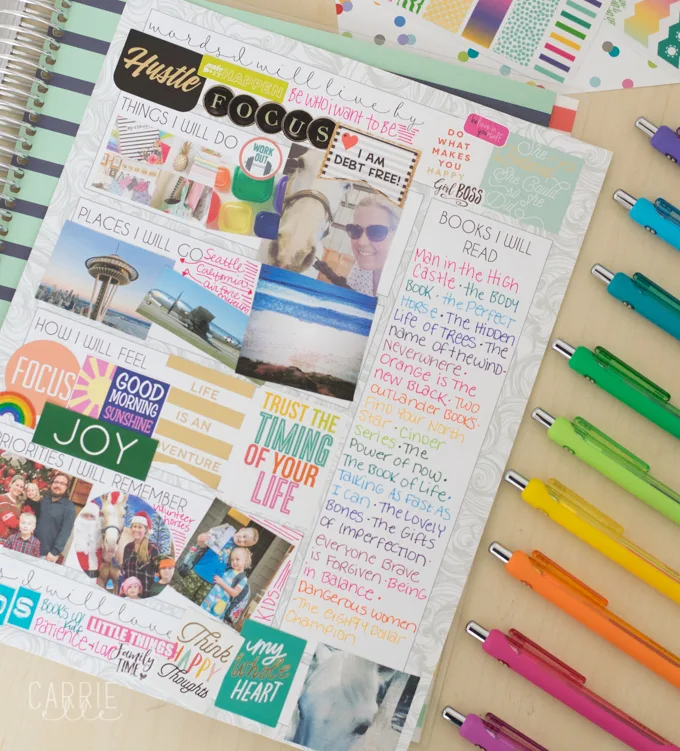 words I will live by
Hustle
make it
HAPPEN
FOCUS
Be who i want to Be
THINGS I WILL DO
WORK
OUT
I AM
DEBT FREE!
believe in
yourself
DO
WHAT
MAKES
YOU
HAPPY
Girl BOSS
She
She Could
So She
Did
PLACES I WILL GO
Seattle
California
HOW I WILL FEEL
FOCUS
GOOD
MORNING
SUNSHINE
JOY
LIFE
IS AN
VENTURE
TRUST THE
TIMING
OF YOUR
LIFE
PRIORITIES I WILL REMEMBER
volunteer
horses
KIDS
s I will love
DS
Patience + Love
LITTLE THINGS
Family
TIME
Think
HAPPY
Thoughts
my
whole
HEART
BOOKS I WILL
READ
Man in the High
Castle · the BODY
BOOK · the Perfect
Horse · The Hidden
Life of Trees · The
name of the wind ·
Neverwhere ·
Orange is the
new Black · Two
outlander BOOKS ·
Find Your North
Star · Cinder
series · The
Power of Now ·
The Book of Life ·
Talking As Fast As
I Can · The Lovely
Bones · The Gifts
of Imperfection ·
everyone Brave
is Forgiven · Being
in Balance ·
Dangerous women
· The eighty Dollar
Champion
CARRIE
elle